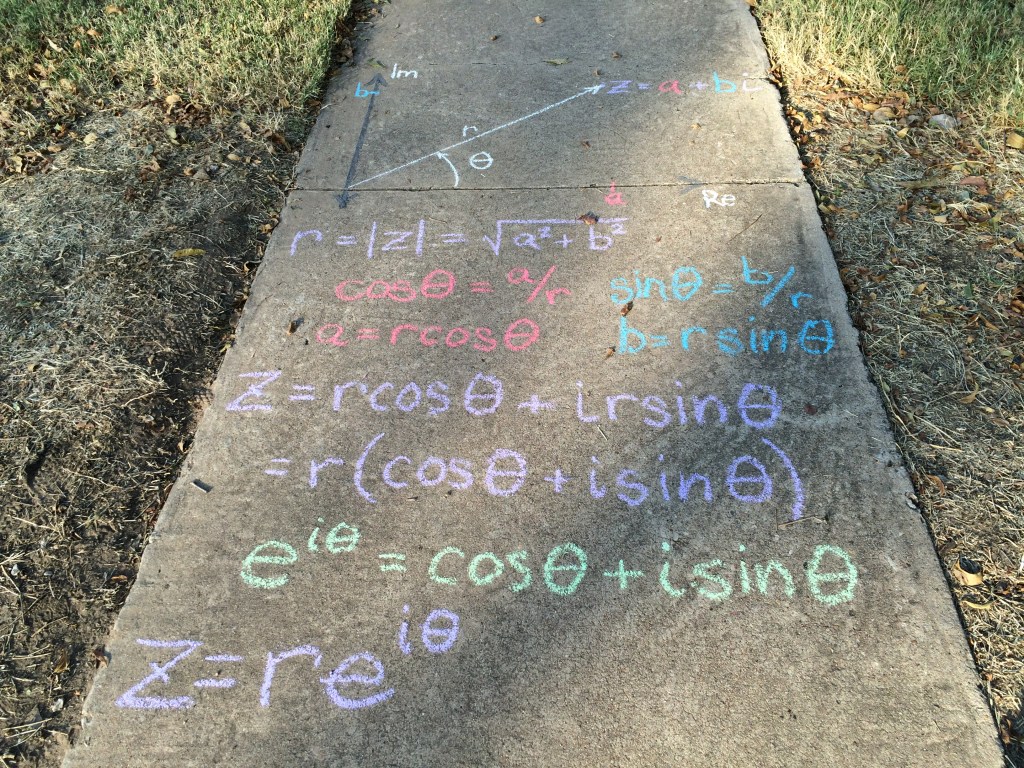 Im
b
z = a + bi
r
θ
a
Re
r = |z| = √a² + b²
cosθ = a/r sinθ = b/r
a = rcosθ b = rsinθ
Z = rcosθ + irsinθ
= r(cosθ + isinθ)
e^iθ = cosθ + isinθ
Z = re^iθ